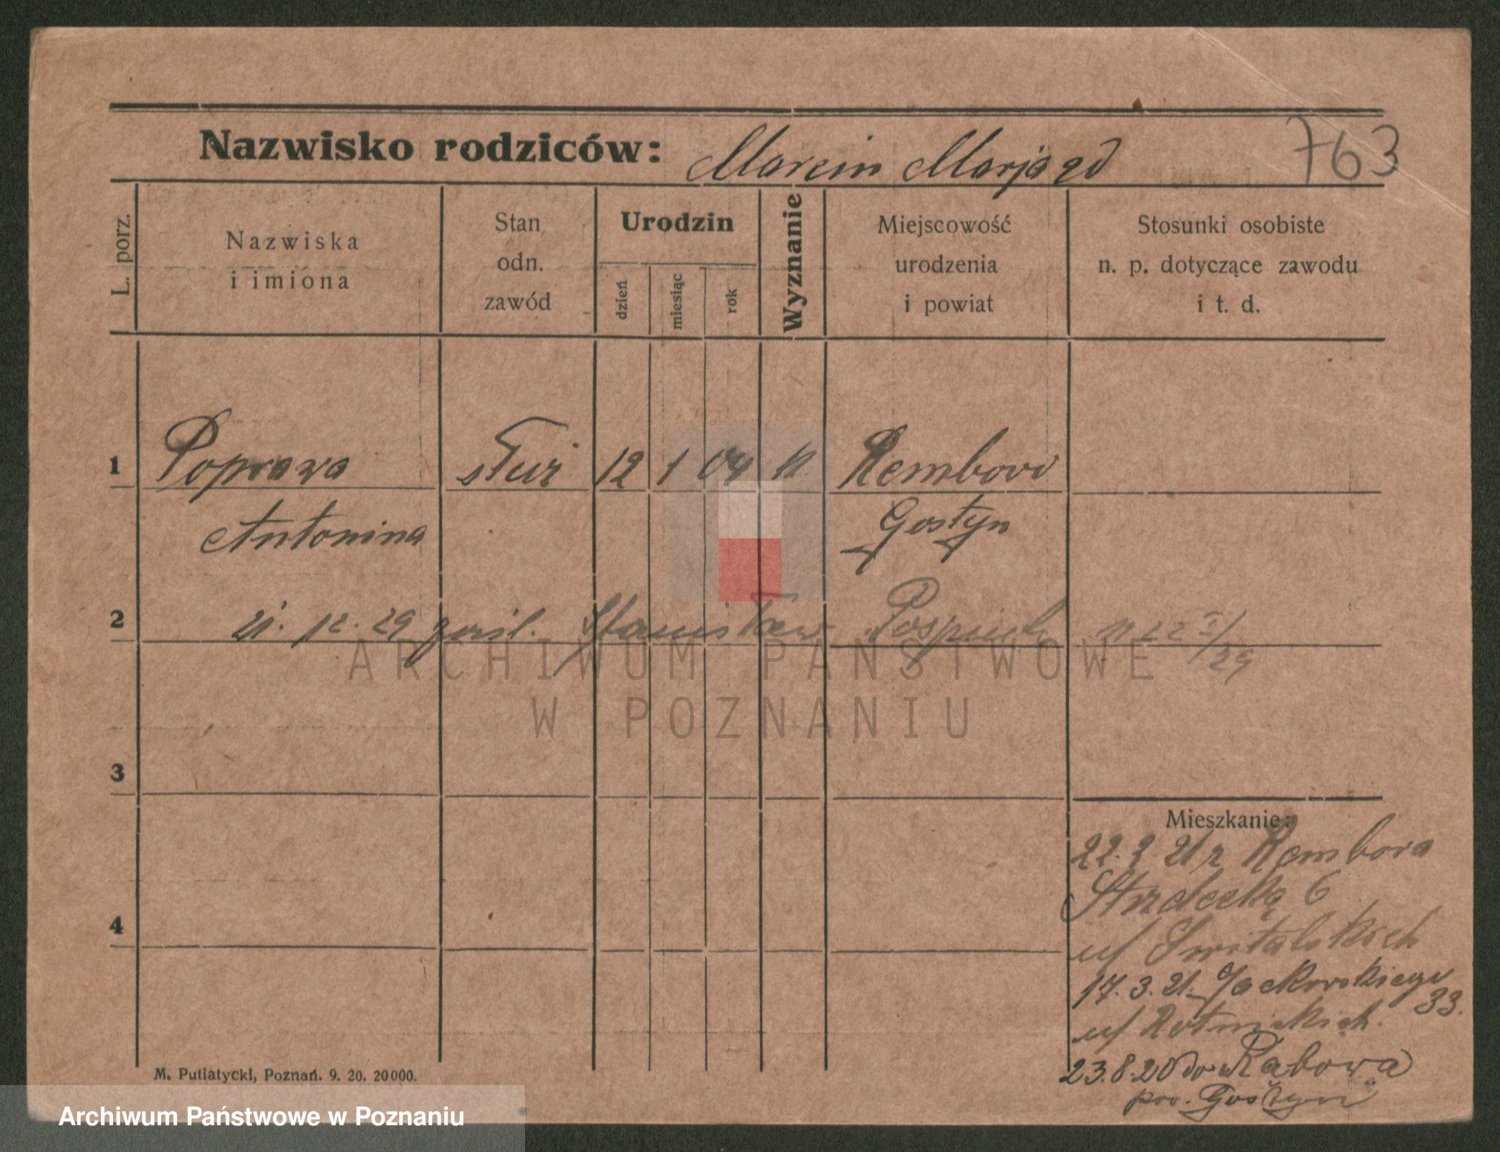 Nazwisko rodziców: Marcin Marja
763
L. porz.
Nazwiska
i imiona
Stan
odn.
zawód
Urodzin
dzień
miesiąc
rok
Wyznanie
Miejscowość
urodzenia
i powiat
Stosunki osobiste
n. p. dotyczące zawodu
i t. d.
1 Poprawa służ 12 1 04 Rembowo
Antonina Gostyn
2 21. 12. 29 Stanisław 22 I/29
ARCHIWUM PAŃSTWOWE
W POZNANIU
3
Mieszkanie:
22. 21 z Rembowa
Strzelecka 6
u/ Switalskich
4
17. 3. 21. Jackowskiego
33.
u/ Rotnickich.
23. 8. 20 do
pow. Gostyn
M. Putiatycki, Poznań. 9. 20. 20000.
Archiwum Państwowe w Poznaniu